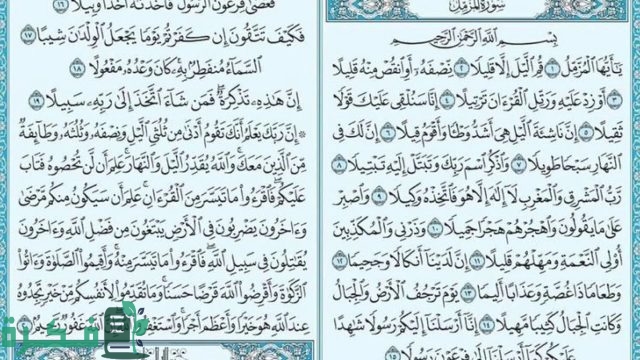 سُورَةُ المُزَّمِّلِ
بِسْمِ اللَّهِ الرَّحْمَٰنِ الرَّحِيمِ
يَٰٓأَيُّهَا ٱلْمُزَّمِّلُ ١ قُمِ ٱلَّيْلَ إِلَّا قَلِيلًا ٢ نِّصْفَهُۥٓ أَوِ ٱنقُصْ مِنْهُ قَلِيلًا
٣ أَوْ زِدْ عَلَيْهِ وَرَتِّلِ ٱلْقُرْءَانَ تَرْتِيلًا ٤ إِنَّا سَنُلْقِى عَلَيْكَ قَوْلًا
ثَقِيلًا ٥ إِنَّ نَاشِئَةَ ٱلَّيْلِ هِىَ أَشَدُّ وَطْـًٔا وَأَقْوَمُ قِيلًا ٦ إِنَّ لَكَ فِى
ٱلنَّهَارِ سَبْحًا طَوِيلًا ٧ وَٱذْكُرِ ٱسْمَ رَبِّكَ وَتَبَتَّلْ إِلَيْهِ تَبْتِيلًا ٨
رَّبُّ ٱلْمَشْرِقِ وَٱلْمَغْرِبِ لَآ إِلَٰهَ إِلَّا هُوَ فَٱتَّخِذْهُ وَكِيلًا ٩ وَٱصْبِرْ
عَلَىٰ مَا يَقُولُونَ وَٱهْجُرْهُمْ هَجْرًا جَمِيلًا ١٠ وَذَرْنِى وَٱلْمُكَذِّبِينَ
أُو۟لِى ٱلنَّعْمَةِ وَمَهِّلْهُمْ قَلِيلًا ١١ إِنَّ لَدَيْنَآ أَنكَالًا وَجَحِيمًا ١٢
وَطَعَامًا ذَا غُصَّةٍ وَعَذَابًا أَلِيمًا ١٣ يَوْمَ تَرْجُفُ ٱلْأَرْضُ وَٱلْجِبَالُ
وَكَانَتِ ٱلْجِبَالُ كَثِيبًا مَّهِيلًا ١٤ إِنَّآ أَرْسَلْنَآ إِلَيْكُمْ رَسُولًا شَٰهِدًا
عَلَيْكُمْ كَمَآ أَرْسَلْنَآ إِلَىٰ فِرْعَوْنَ رَسُولًا ١٥
فَعَصَىٰ فِرْعَوْنُ ٱلرَّسُولَ فَأَخَذْنَٰهُ أَخْذًا وَبِيلًا ١٦
فَكَيْفَ تَتَّقُونَ إِن كَفَرْتُمْ يَوْمًا يَجْعَلُ ٱلْوِلْدَٰنَ شِيبًا ١٧
ٱلسَّمَآءُ مُنفَطِرٌۢ بِهِۦ كَانَ وَعْدُهُۥ مَفْعُولًا ١٨
إِنَّ هَٰذِهِۦ تَذْكِرَةٌ فَمَن شَآءَ ٱتَّخَذَ إِلَىٰ رَبِّهِۦ سَبِيلًا ١٩
۞ إِنَّ رَبَّكَ يَعْلَمُ أَنَّكَ تَقُومُ أَدْنَىٰ مِن ثُلُثَىِ ٱلَّيْلِ وَنِصْفَهُۥ وَثُلُثَهُۥ وَطَآئِفَةٌ
مِّنَ ٱلَّذِينَ مَعَكَ وَٱللَّهُ يُقَدِّرُ ٱلَّيْلَ وَٱلنَّهَارَ عَلِمَ أَن لَّن تُحْصُوهُ فَتَابَ
عَلَيْكُمْ فَٱقْرَءُوا۟ مَا تَيَسَّرَ مِنَ ٱلْقُرْءَانِ عَلِمَ أَن سَيَكُونُ مِنكُم مَّرْضَىٰ
وَءَاخَرُونَ يَضْرِبُونَ فِى ٱلْأَرْضِ يَبْتَغُونَ مِن فَضْلِ ٱللَّهِ وَءَاخَرُونَ
يُقَٰتِلُونَ فِى سَبِيلِ ٱللَّهِ فَٱقْرَءُوا۟ مَا تَيَسَّرَ مِنْهُ وَأَقِيمُوا۟ ٱلصَّلَوٰةَ وَءَاتُوا۟
ٱلزَّكَوٰةَ وَأَقْرِضُوا۟ ٱللَّهَ قَرْضًا حَسَنًا وَمَا تُقَدِّمُوا۟ لِأَنفُسِكُم مِّنْ خَيْرٍ تَجِدُوهُ
عِندَ ٱللَّهِ هُوَ خَيْرًا وَأَعْظَمَ أَجْرًا وَٱسْتَغْفِرُوا۟ ٱللَّهَ إِنَّ ٱللَّهَ غَفُورٌ رَّحِيمٌۢ
فكرة